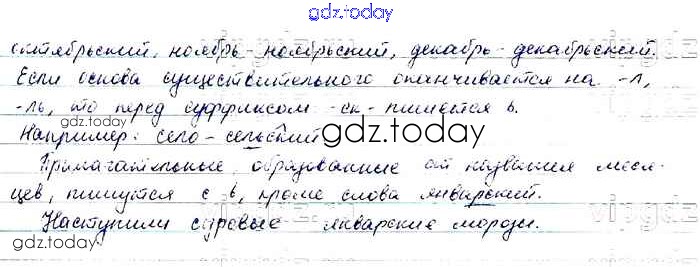 gdz.today
октябрьский, ноябрь - ноябрьский, декабрь - декабрьский.
Если основа существительного оканчивается на -л,
-ль, то перед суффиксом -ск- пишется ь.
gdz.today
Например: село - сельский
gdz.today
Прилагательные, образованные от названия меся-
цев, пишутся с ь, кроме слова январский.
vipgdz
Наступили суровые январские морозы.
gdz.today